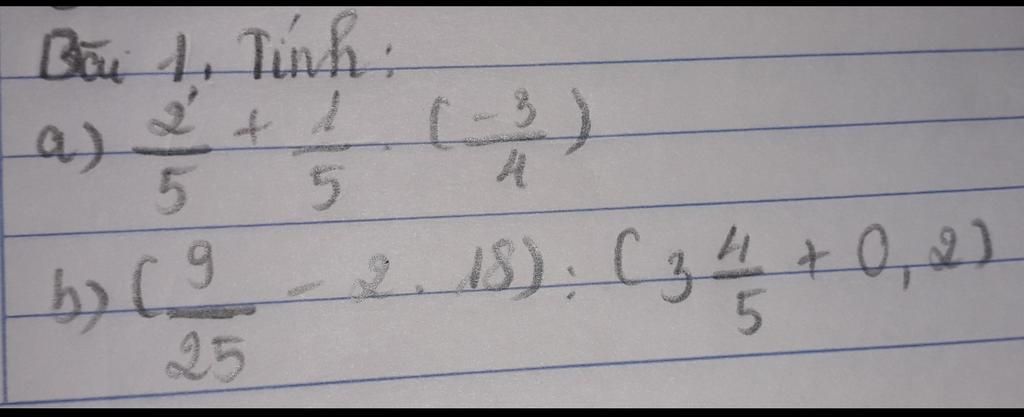 Bài 1. Tính:
a) 2/5 + 1/5 . (-3/4)
b) (9/25 - 2 . 18) : (3 4/5 + 0,2)